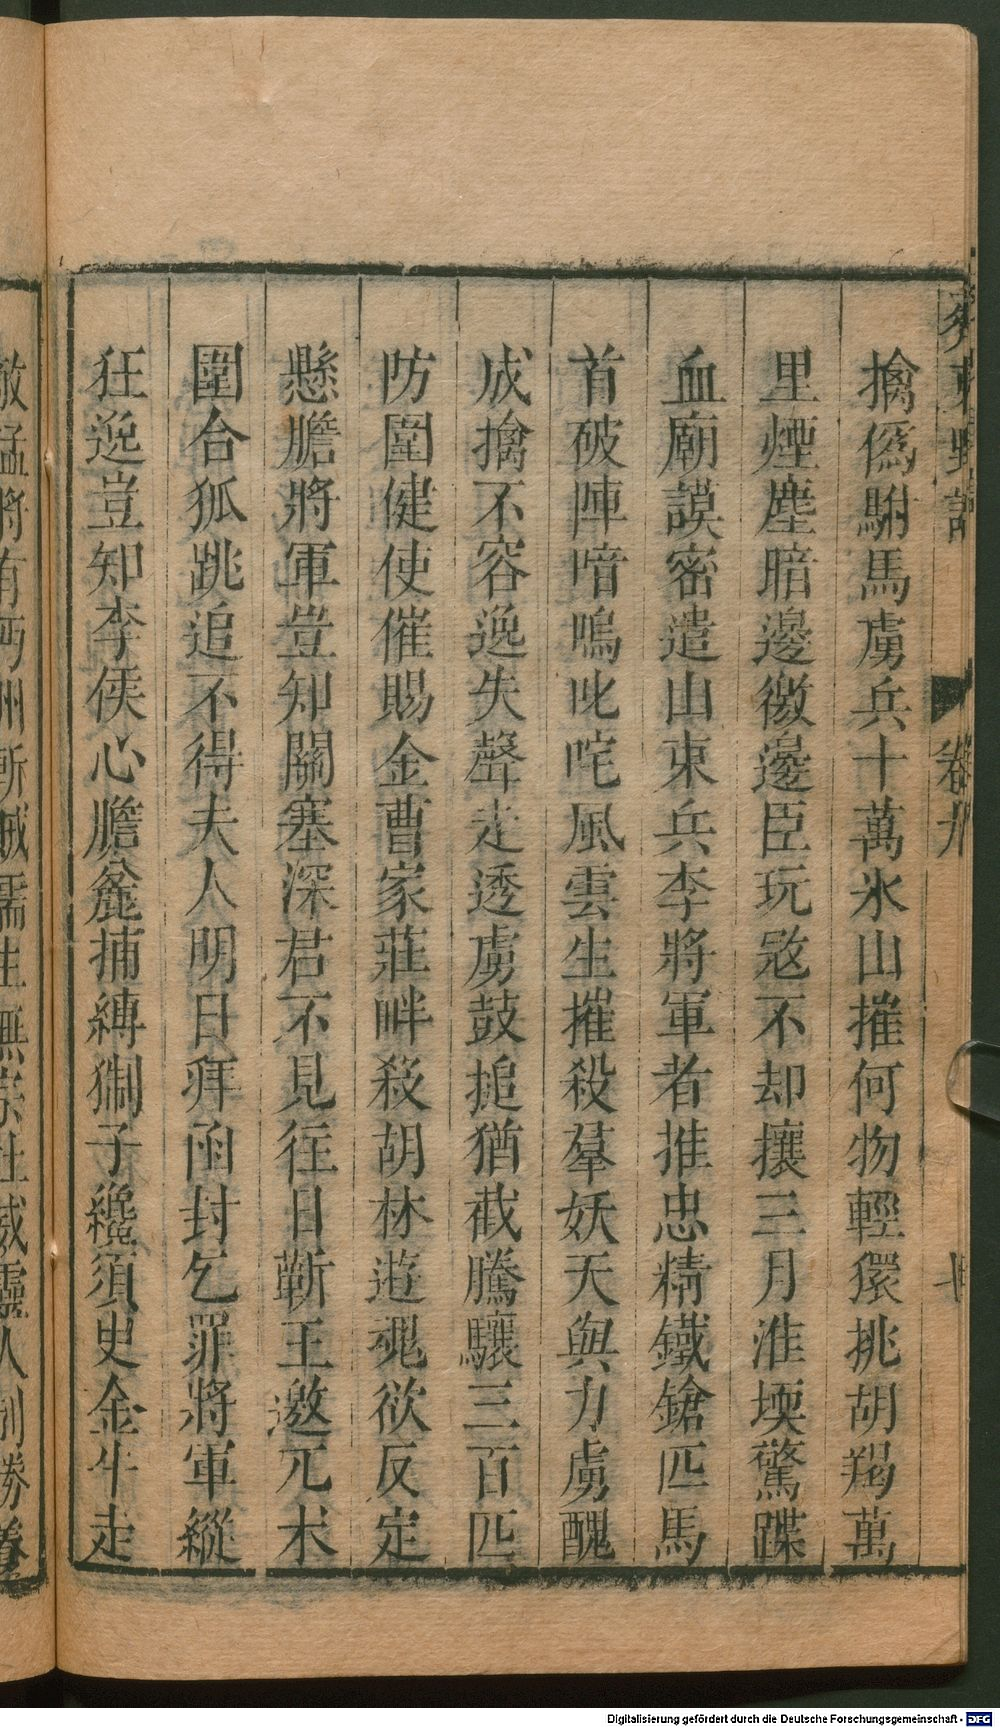 齊東野語
卷九
十
擒僞駙馬虜兵十萬氷山摧何物輕獧挑胡羯萬
里煙塵暗邊徼邊臣玩𡨥不却攘三月淮壖驚蹀
血廟謨密遣山東兵李將軍者推忠精鐵鎗匹馬
首破陣喑嗚叱咤風雲生摧殺羣妖天與力虜醜
成擒不容逸失聲走透虜鼓搥猶截騰驤三百匹
防圍健使催賜金曹家莊畔殺胡林遊魂欲反定
懸膽將軍豈知關塞深君不見往日蘄王邀兀术
圍合狐跳追不得夫人明日拜函封乞罪將軍縱
狂逸豈知李侯心膽麄捕縛猘子纔須史金牛走
敵猛將有西州斬馘儒生無宗社威靈人制勝養
Digitalisierung gefördert durch die Deutsche Forschungsgemeinschaft - DFG